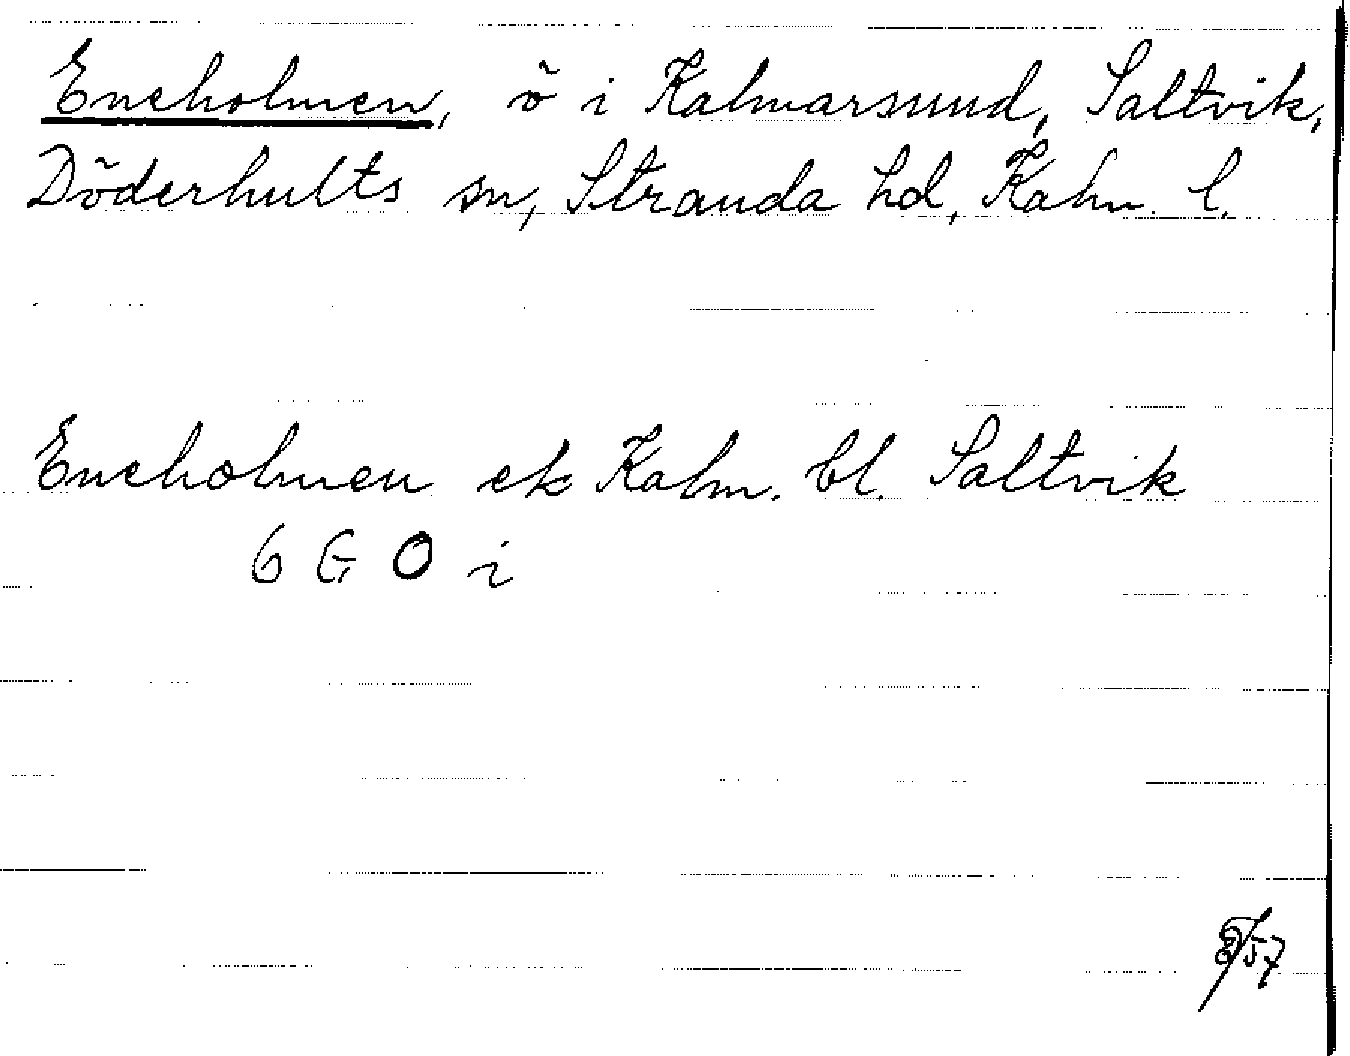 Eneholmen, ö i Kalmarsund, Saltvik,
Döderhults sn, Stranda hd, Kalm. l.
Eneholmen ek Kalm. bl. Saltvik
6 G O i
57